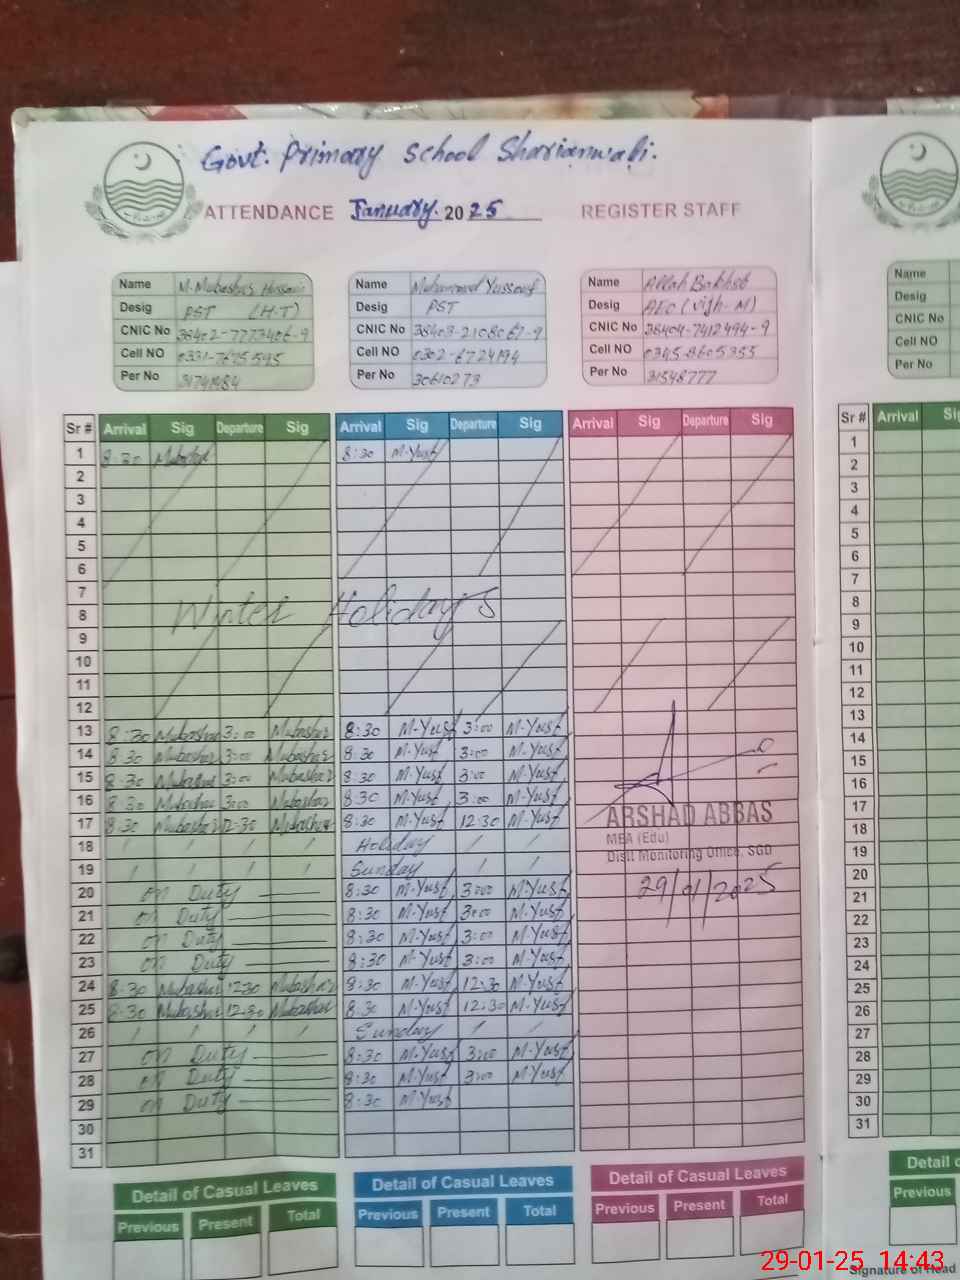 Govt. Primary School Sharianwali.
ATTENDANCE January. 2025 REGISTER STAFF
Name M. Mubashar Hussain
Desig PST (H.T)
CNIC No 38402-7773406-9
Cell NO 0331-7675595
Per No
Name Muhammad Yussouf
Desig PST
CNIC No 38403-2108067-9
Cell NO 0302-6724194
Per No 30610273
Name Allah Bakhsh
Desig AEO (Vijh-M)
CNIC No 38404-7412494-9
Cell NO 0345-8605355
Per No 31548777
Name
Desig
CNIC No
Cell NO
Per No
Sr # Arrival Sig Departure Sig Arrival Sig Departure Sig Arrival Sig Departure Sig Sr # Arrival
1 8:30 Mubashar 8:30 M-Yusf 1
2 2
3 3
4 4
5 5
6 6
7 7
8 Winter Holidays 8
9 9
10 10
11 11
12 12
13 8:30 Mubashar 3:00 Mubashar 8:30 M-Yusf 3:00 M-Yusf 13
14 8:30 Mubashar 3:00 Mubashar 8:30 M-Yusf 3:00 M-Yusf 14
15 8:30 Mubashar 3:00 Mubashar 8:30 M-Yusf 3:00 M-Yusf 15
16 8:30 Mubashar 3:00 Mubashar 8:30 M-Yusf 3:00 M-Yusf 16
17 8:30 Mubashar 12:30 Mubashar 8:30 M-Yusf 12:30 M-Yusf 17
18 Holiday 18
19 Sunday 19
20 on Duty 8:30 M-Yusf 3:00 M-Yusf 20
21 on Duty 8:30 M-Yusf 3:00 M-Yusf 21
22 on Duty 8:30 M-Yusf 3:00 M-Yusf 22
23 on Duty 8:30 M-Yusf 3:00 M-Yusf 23
24 8:30 Mubashar 12:30 Mubashar 8:30 M-Yusf 12:30 M-Yusf 24
25 8:30 Mubashar 12:30 Mubashar 8:30 M-Yusf 12:30 M-Yusf 25
26 Sunday 26
27 on Duty 8:30 M-Yusf 3:00 M-Yusf 27
28 on Duty 8:30 M-Yusf 3:00 M-Yusf 28
29 on Duty 8:30 M-Yusf 29
30 30
31 31
ARSHAD ABBAS
MEA (Edu)
Distt Monitoring Office, SGD
29/01/2025
Detail of Casual Leaves Detail of Casual Leaves Detail of Casual Leaves Detail
Previous Present Total Previous Present Total Previous Present Total Previous
Signature of Head
29-01-25 14:43